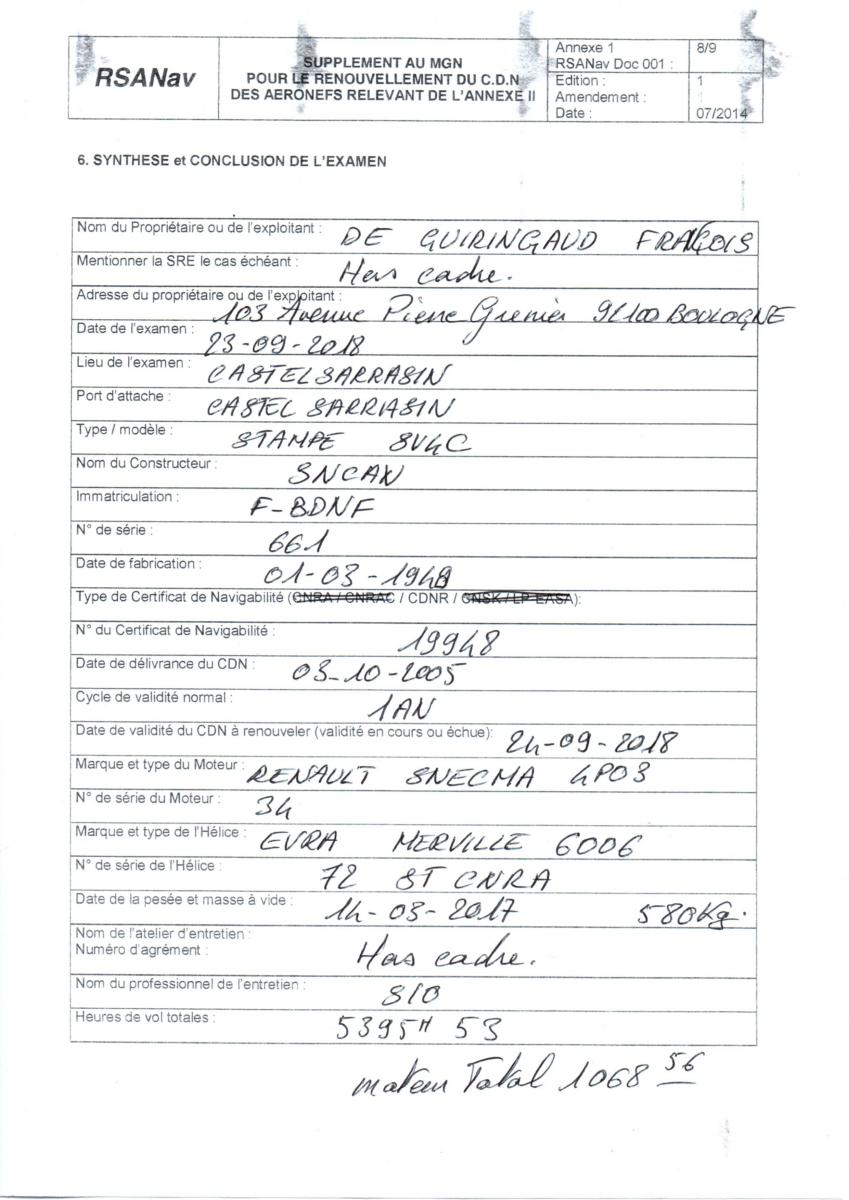 RSANav
SUPPLEMENT AU MGN
POUR LE RENOUVELLEMENT DU C.D.N
DES AERONEFS RELEVANT DE L'ANNEXE II
Annexe 1 8/9
RSANav Doc 001 :
Edition : 1
Amendement :
Date : 07/2014
6. SYNTHESE et CONCLUSION DE L'EXAMEN
Nom du Propriétaire ou de l'exploitant : DE GUIRINGAUD FRANÇOIS
Mentionner la SRE le cas échéant : Hors cadre.
Adresse du propriétaire ou de l'exploitant : 103 Avenue Pierre Grenier 92100 BOULOGNE
Date de l'examen : 23-09-2018
Lieu de l'examen : CASTELSARRASIN
Port d'attache : CASTEL SARRASIN
Type / modèle : STAMPE SV4C
Nom du Constructeur : SNCAN
Immatriculation : F-BDNF
N° de série : 661
Date de fabrication : 01-03-1948
Type de Certificat de Navigabilité (CNRA / CNRAC / CDNR / CNSK / LP EASA):
N° du Certificat de Navigabilité : 19948
Date de délivrance du CDN : 03-10-2005
Cycle de validité normal : 1AN
Date de validité du CDN à renouveler (validité en cours ou échue): 24-09-2018
Marque et type du Moteur : RENAULT SNECMA 4P03
N° de série du Moteur : 34
Marque et type de l'Hélice : EVRA MERVILLE 6006
N° de série de l'Hélice : 72 ST CNRA
Date de la pesée et masse à vide : 14-03-2017 580Kg.
Nom de l'atelier d'entretien :
Numéro d'agrément : Hors cadre.
Nom du professionnel de l'entretien : S/O
Heures de vol totales : 5395H 53
moteur Total 1068 56